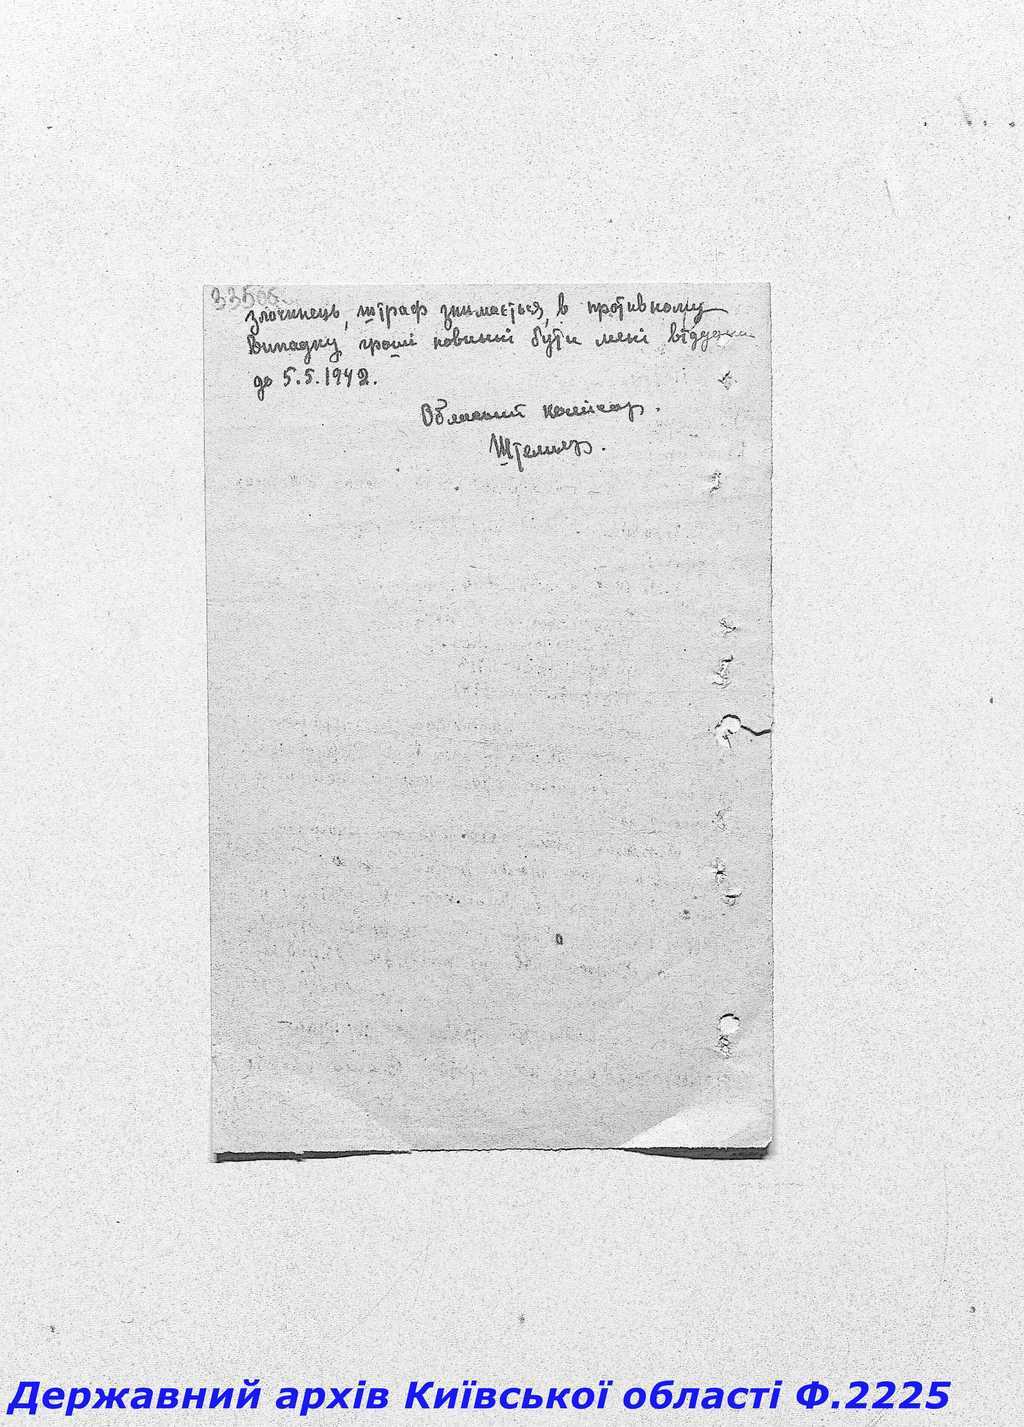 злочинець, штраф знимається, в противному
випадку гроші повинні бути мені віддани
до 5.5.1942.
Обласний комісар.
Штельцер.
Державний архів Київської області Ф.2225